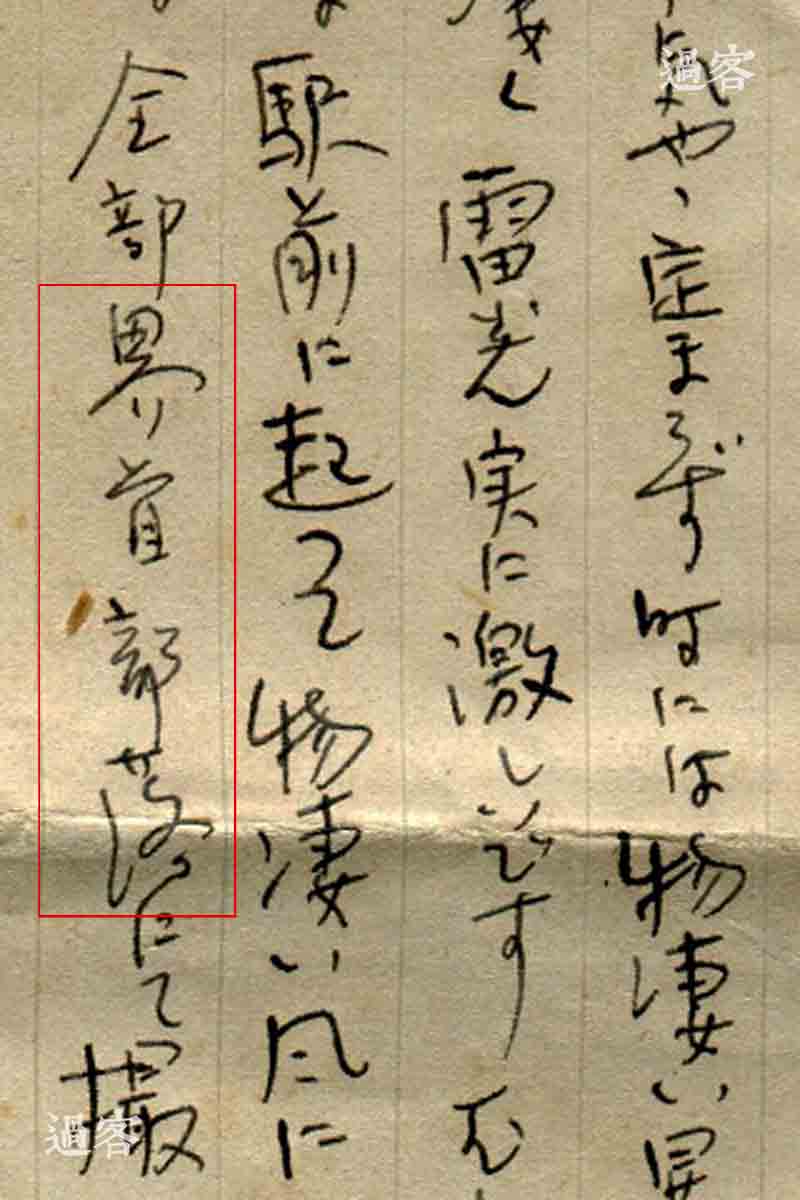 気やゝ定まらず時には物凄い
凄く雷光実に激しいです
駅前に起って物凄い風に
全部界首部落にて撮
過客
過客